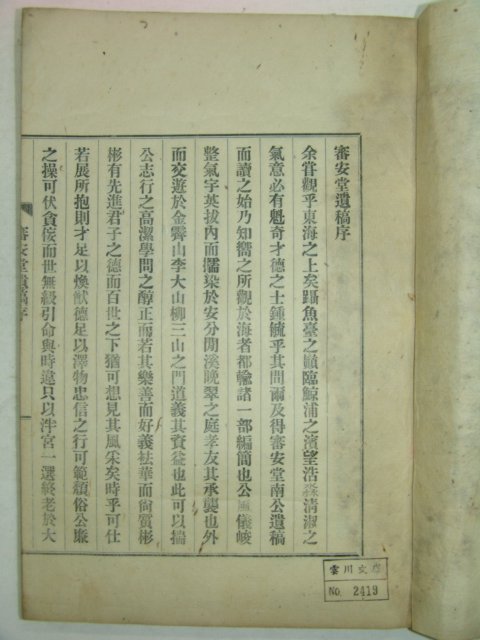 審安堂遺稿序
余嘗觀乎東海之上矣躡魚臺之巓臨鯨浦之濱望浩淼淸淑之
氣意必有魁奇才德之士鍾毓乎其間爾及得審安堂南公遺稿
而讀之始乃知嚮之所觀於海者都輸諸一部編簡也公儀峻
整氣宇英拔內而濡染於安分閒溪晩翠之庭孝友其承襲也外
而交遊於金霽山李大山柳三山之門道義其資益也此可以揣
公志行之高潔學問之醇正而若其樂善而好義袪華而尙質彬
彬有先進君子之德而百世之下猶可想見其風采矣時乎可仕
若展所抱則才足以煥猷德足以澤物忠信之行可範頹俗公廉
之操可伏貪侫而世無綏引命與時違只以泮宮一選終老於大
審安堂遺稿序
雲川文庫
No. 2419